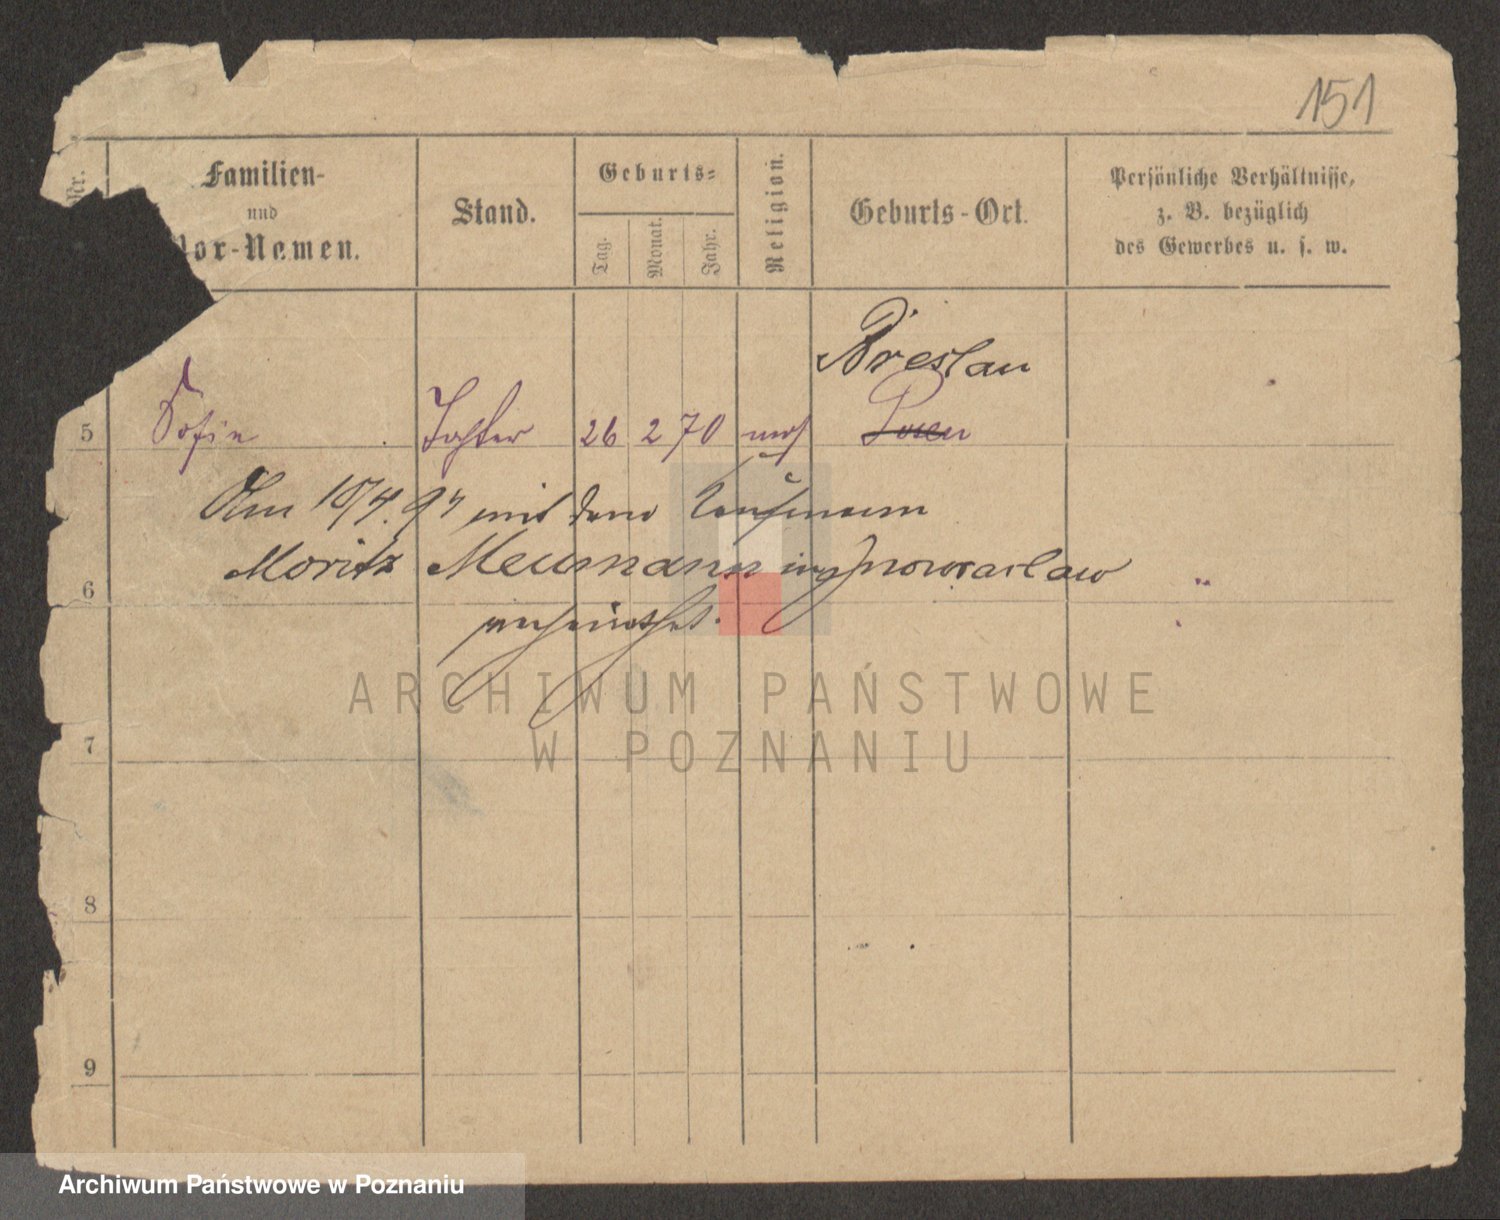 151
Nr.
Familien-
und
Vor-Namen.
Stand.
Geburts-
Tag.
Monat.
Jahr.
Religion.
Geburts-Ort.
Persönliche Verhältnisse,
z. B. bezüglich
des Gewerbes u. s. w.
Breslau
5 Sofie Tochter 26 2 70 mos
Am 10/4. 94 mit dem Kaufmann
Moritz Neumann in Inowraslaw
6
verheirathet.
ARCHIWUM PAŃSTWOWE
W POZNANIU
7
8
9
Archiwum Państwowe w Poznaniu